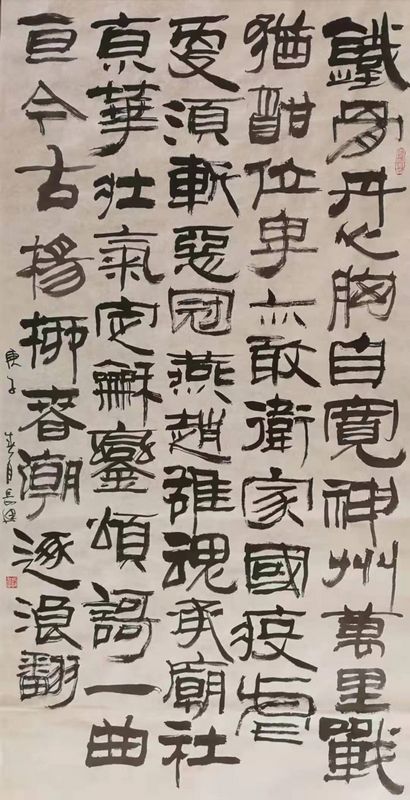 鐵骨丹心胸自寬神州萬里戰
猶酣位卑亦敢衛家國疫虐
更須斬惡冠燕趙雄魂承廟社
京華壯氣定龢鑾頌謌一曲
亘今古楊柳春潮逐浪翻
庚子春月